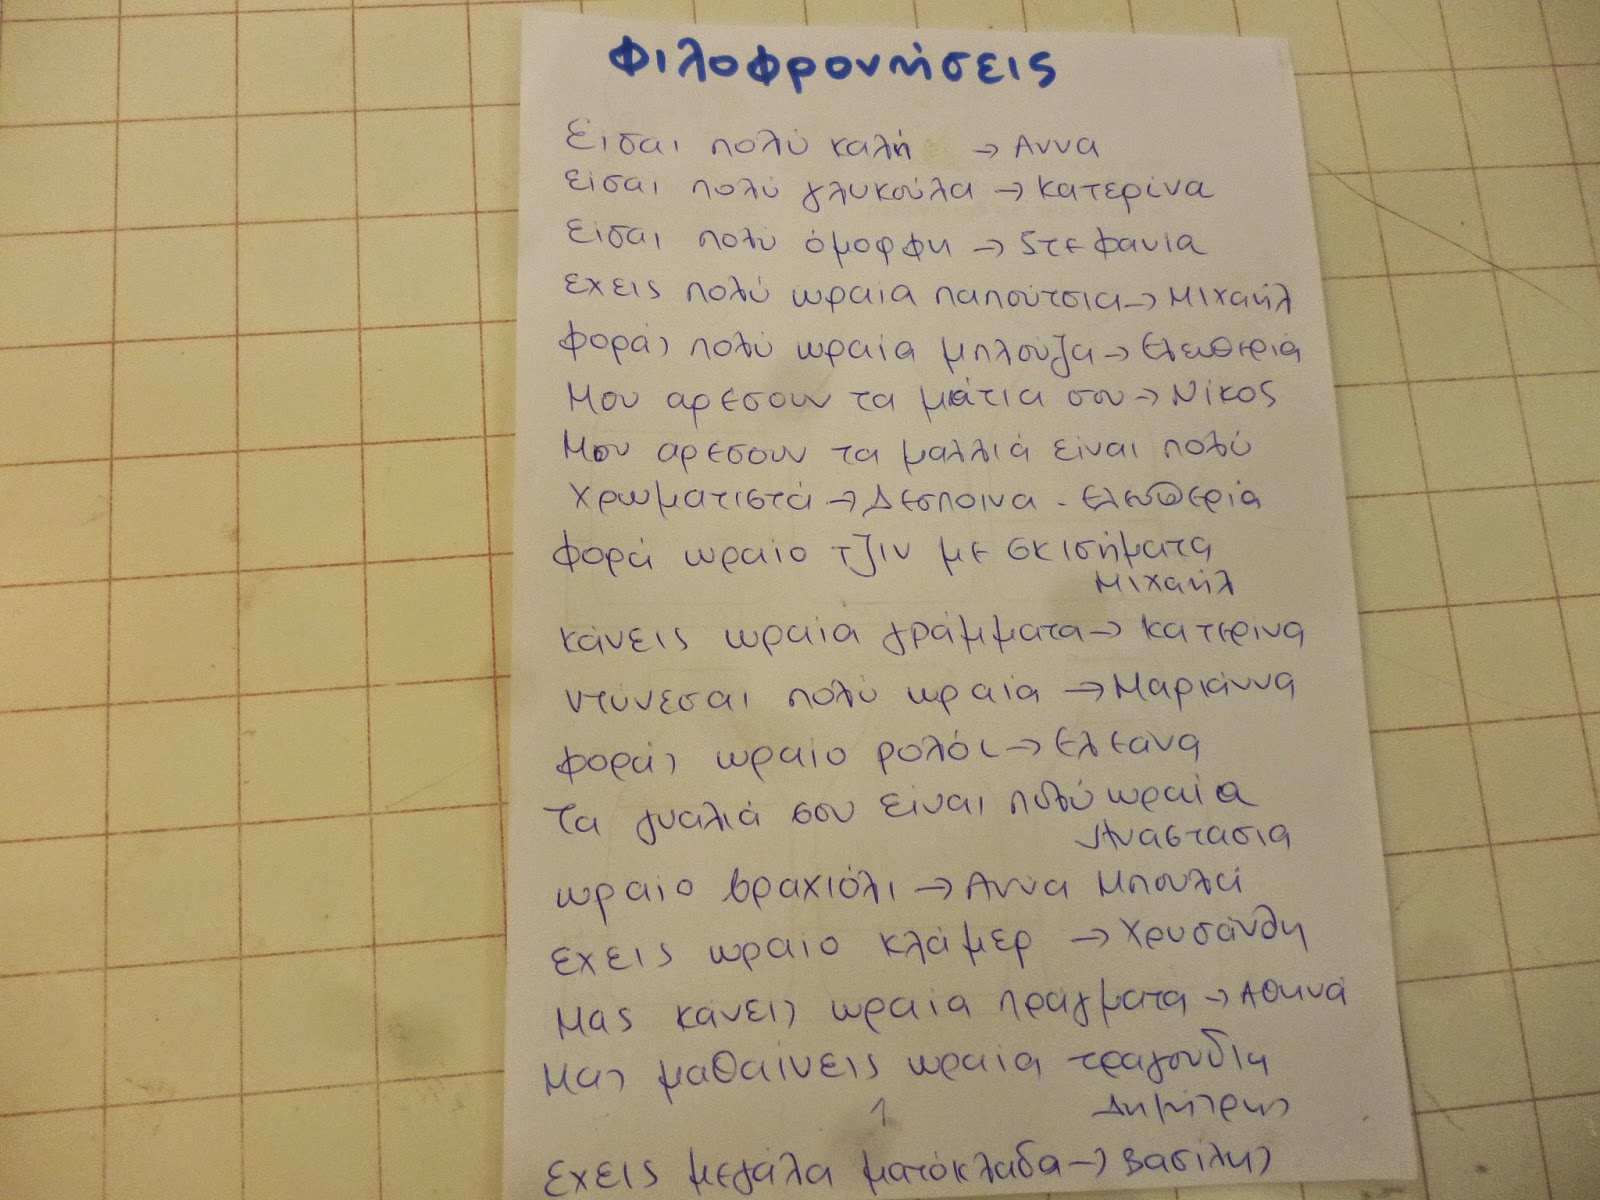 Φιλοφρονήσεις
Είσαι πολύ καλή → Αννα
είσαι πολύ γλυκούλα → Κατερίνα
είσαι πολύ όμορφη → Στεφανία
εχεις πολύ ωραία παπούτσια → Μιχαήλ
φοράς πολύ ωραία μπλούζα → Ελευθερία
Μου αρέσουν τα μάτια σου → Νίκος
Μου αρεσουν τα μαλλιά είναι πολύ
χρωματιστά → Δεσποινα - Ελευθερία
φορά ωραίο τζιν με σκισήματα
Μιχαήλ
κάνεις ωραία γράμματα → Κατερινα
ντύνεσαι πολύ ωραία → Μαριάννα
φοράς ωραίο ρολόι → Ελεάνα
Τα γυαλιά σου είναι πολύ ωραία
Αναστασια
ωραίο βραχιόλι → Αννα Μπουλά
εχεις ωραιο κλάμερ → Χρυσάνθη
Μας κάνεις ωραία πράγματα → Αθηνά
Μας μαθαίνεις ωραία τραγούδια
Δημήτρης
1
εχεις μεγάλα ματόκλαδα → Βασίλης